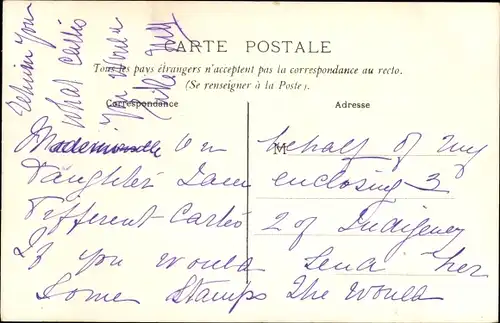 CARTE POSTALE
Tous les pays étrangers n'acceptent pas la correspondance au recto.
(Se renseigner à la Poste).
Correspondance
Adresse
M
Mademoiselle On behalf of my
Daughter I am enclosing 3
Different Cartes 2 of
If you would send her
Some Stamps She would
you
what cartes
you would
like